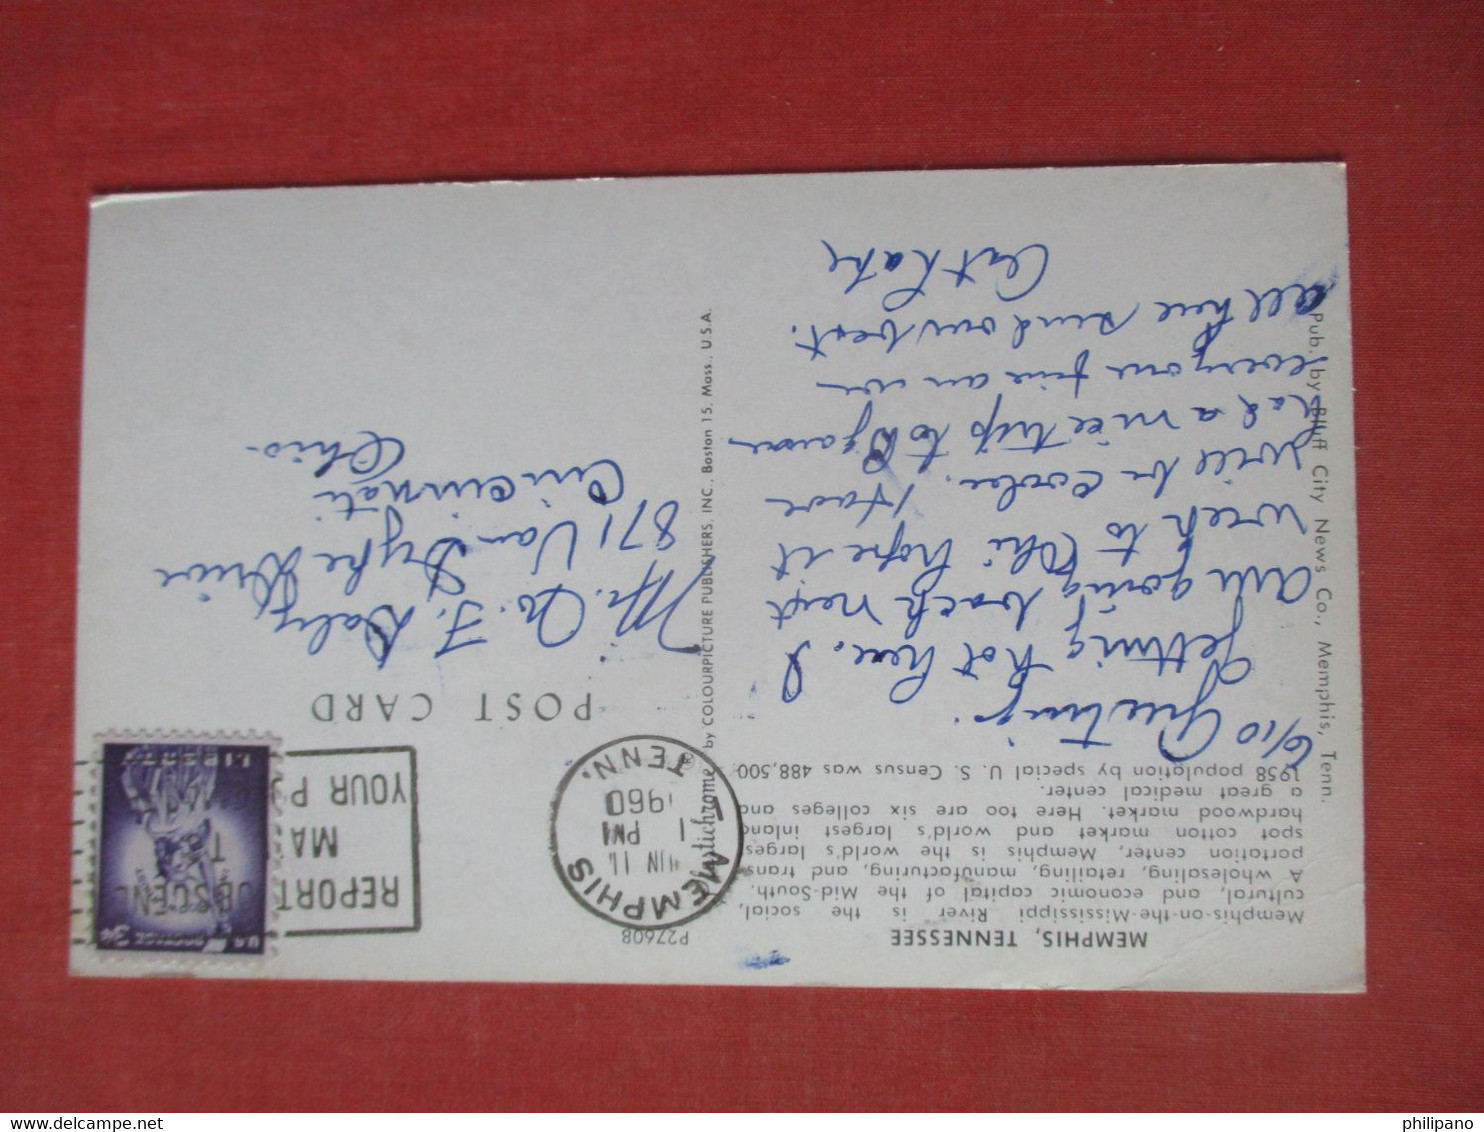 MEMPHIS, TENNESSEE
Memphis-on-the-Mississippi River is the social,
cultural, and economic capital of the Mid-South.
A wholesaling, retailing, manufacturing, and trans-
portation center, Memphis is the world's largest
spot cotton market and world's largest inland
hardwood market. Here too are six colleges and
a great medical center.
1958 population by special U. S. Census was 488,500
6/10 Greetings.
Getting hot here. I
am going back next
week to Ohi hope it
will be cooler. Have
had a nice trip to
everyone fine an
all here send our best.
Art Kate
Pub. by Bluff City News Co., Memphis, Tenn.
Plastichrome ® by COLOURPICTURE PUBLISHERS, INC., Boston 15, Mass., U.S.A.
P27608
MEMPHIS
TENN.
JUN 11
1 PM
1960
REPORT OBSCEN
MA T
YOUR P
U.S. POSTAGE 3¢
LIBERTY
POST CARD
Mr. Jo. F. Daly
871 Van Dyke Drive
Cincinnati
Ohio.
philipano